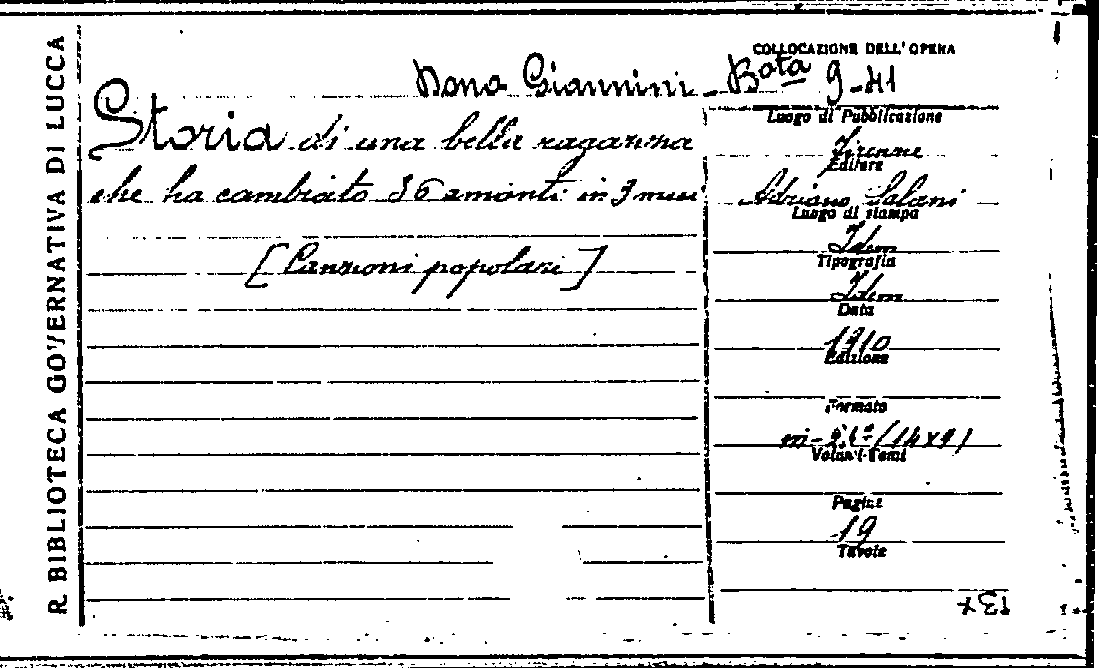 R. BIBLIOTECA GOVERNATIVA DI LUCCA
Dono Giannini - Bcta 9-41
Storia di una bella ragazza
che ha cambiato 36 amanti in 3 mesi
[Canzoni popolari]
COLLOCAZIONE DELL'OPERA
Luogo di Pubblicazione
Firenze
Editore
Adriano Salani
Luogo di stampa
Idem
Tipografia
Idem
Data
1910
Edizione
Formato
(14x9)
Volumi-Tomi
Pagine
19
Tavole